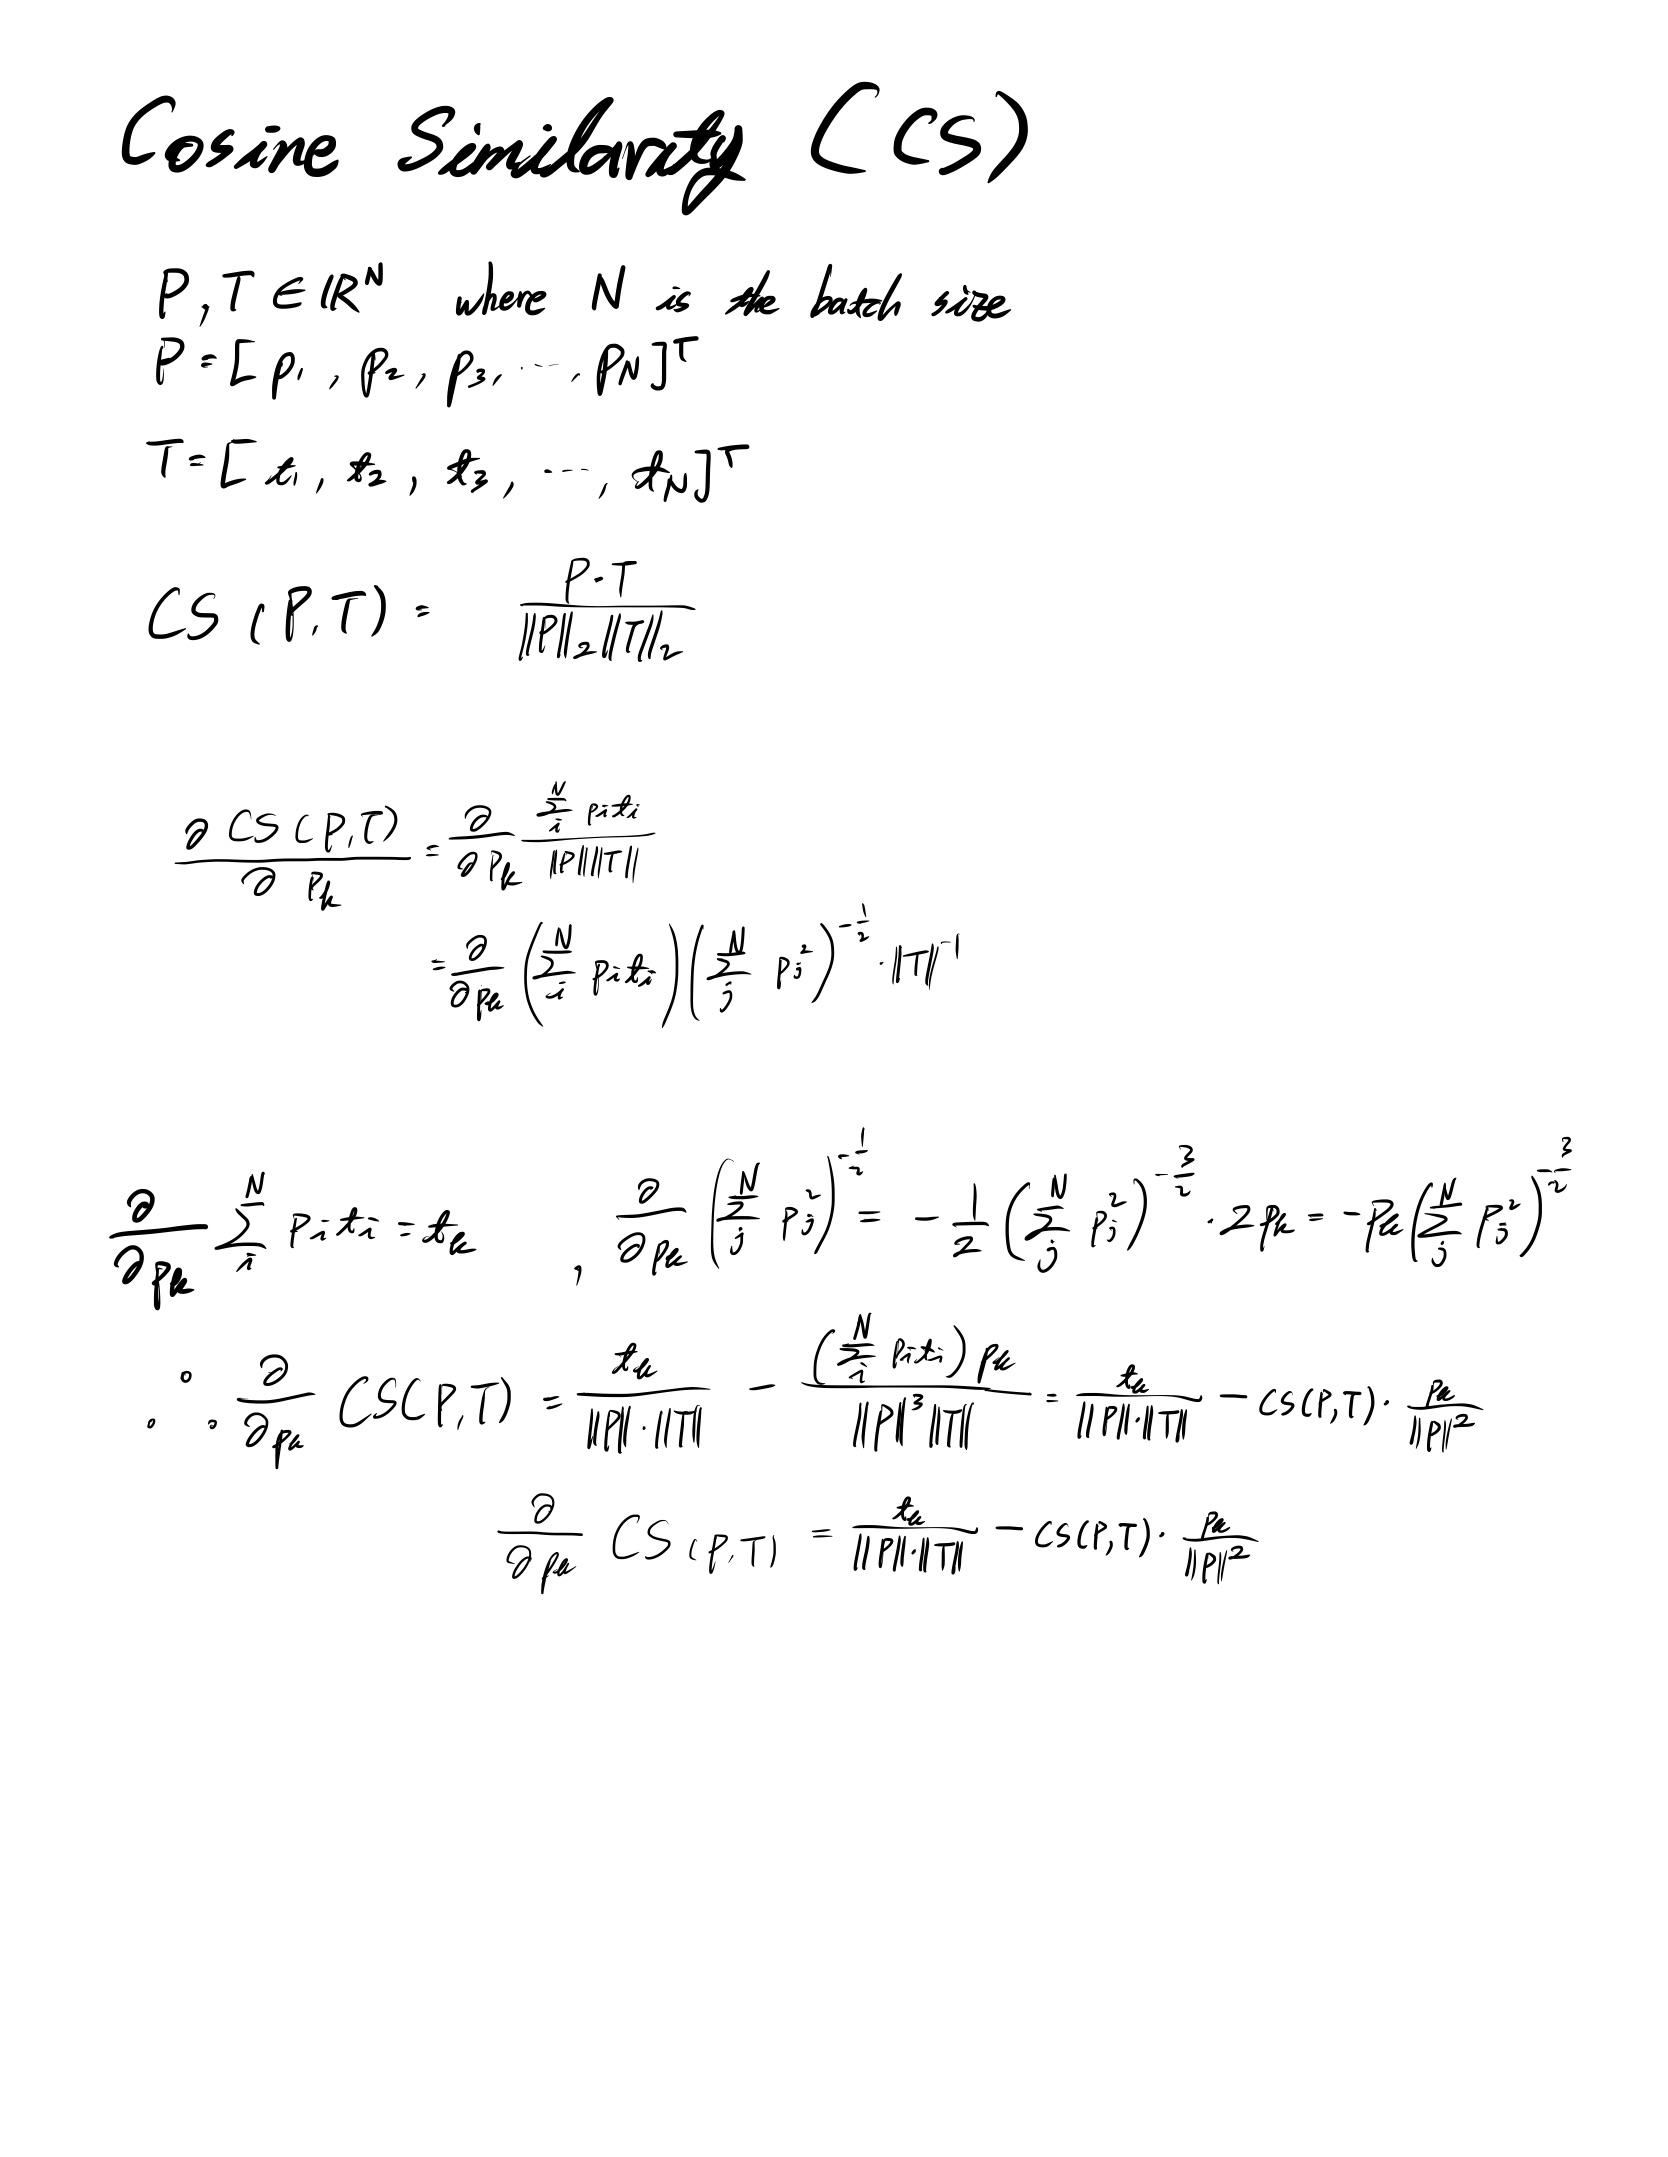 Cosine Similarity (CS)
P, T ∈ ℝ^N where N is the batch size
P = [p_1, p_2, p_3, ..., p_N]^T
T = [t_1, t_2, t_3, ..., t_N]^T
CS(P,T) = \frac{P·T}{||P||_2 ||T||_2}
\frac{∂ CS(P,T)}{∂ p_k} = \frac{∂}{∂ p_k} \frac{\sum_i^N p_i t_i}{||P|| ||T||}
= \frac{∂}{∂ p_k} (\sum_i^N p_i t_i) (\sum_j^N p_j^2)^{-\frac{1}{2}} · ||T||^{-1}
\frac{∂}{∂ p_k} \sum_i^N p_i t_i = t_k , \frac{∂}{∂ p_k} (\sum_j^N p_j^2)^{-\frac{1}{2}} = -\frac{1}{2} (\sum_j^N p_j^2)^{-\frac{3}{2}} · 2p_k = -p_k (\sum_j^N p_j^2)^{-\frac{3}{2}}
∴ \frac{∂}{∂ p_k} CS(P,T) = \frac{t_k}{||P||·||T||} - \frac{(\sum_i^N p_i t_i) p_k}{||P||^3 ||T||} = \frac{t_k}{||P||·||T||} - CS(P,T) · \frac{p_k}{||P||^2}
\frac{∂}{∂ p_k} CS(P,T) = \frac{t_k}{||P||·||T||} - CS(P,T) · \frac{p_k}{||P||^2}